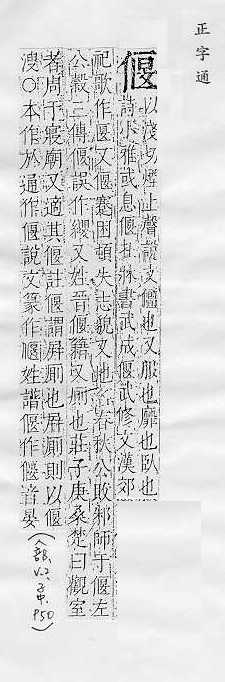 正字通
偃
以淺切煙上聲說文僵也又服也靡也臥也
詩小雅或息偃在牀書武成偃武修文漢郊
祀歌作匽又偃蹇困頓失志貌又地名春秋公敗邾師于偃左
公穀三傳偃誤作纓又姓晉偃籍又廁也莊子庚桑楚曰觀室
者周于寢廟又適其偃註偃謂屏廁也屏廁則以偃
溲○本作㫃通作偃說文篆作偃姓譜偃作匽音晏
(人部, V.2, 子中, P50)